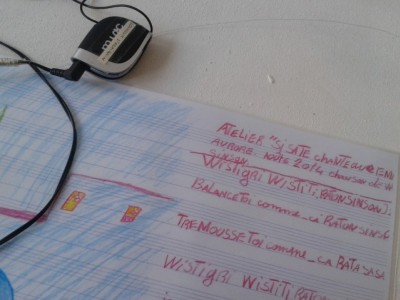 ATELIER "SI SATE CHANTE
AURORE. AOUTE 2014 chanson de W
WISTIGRI WISTITI, RATONSINSON).
BALANCE TOI comme_ca RATON SINSO
TREMOUSSE TOI comme_ca RATA SASA
WISTIGRI WISTITI RATON